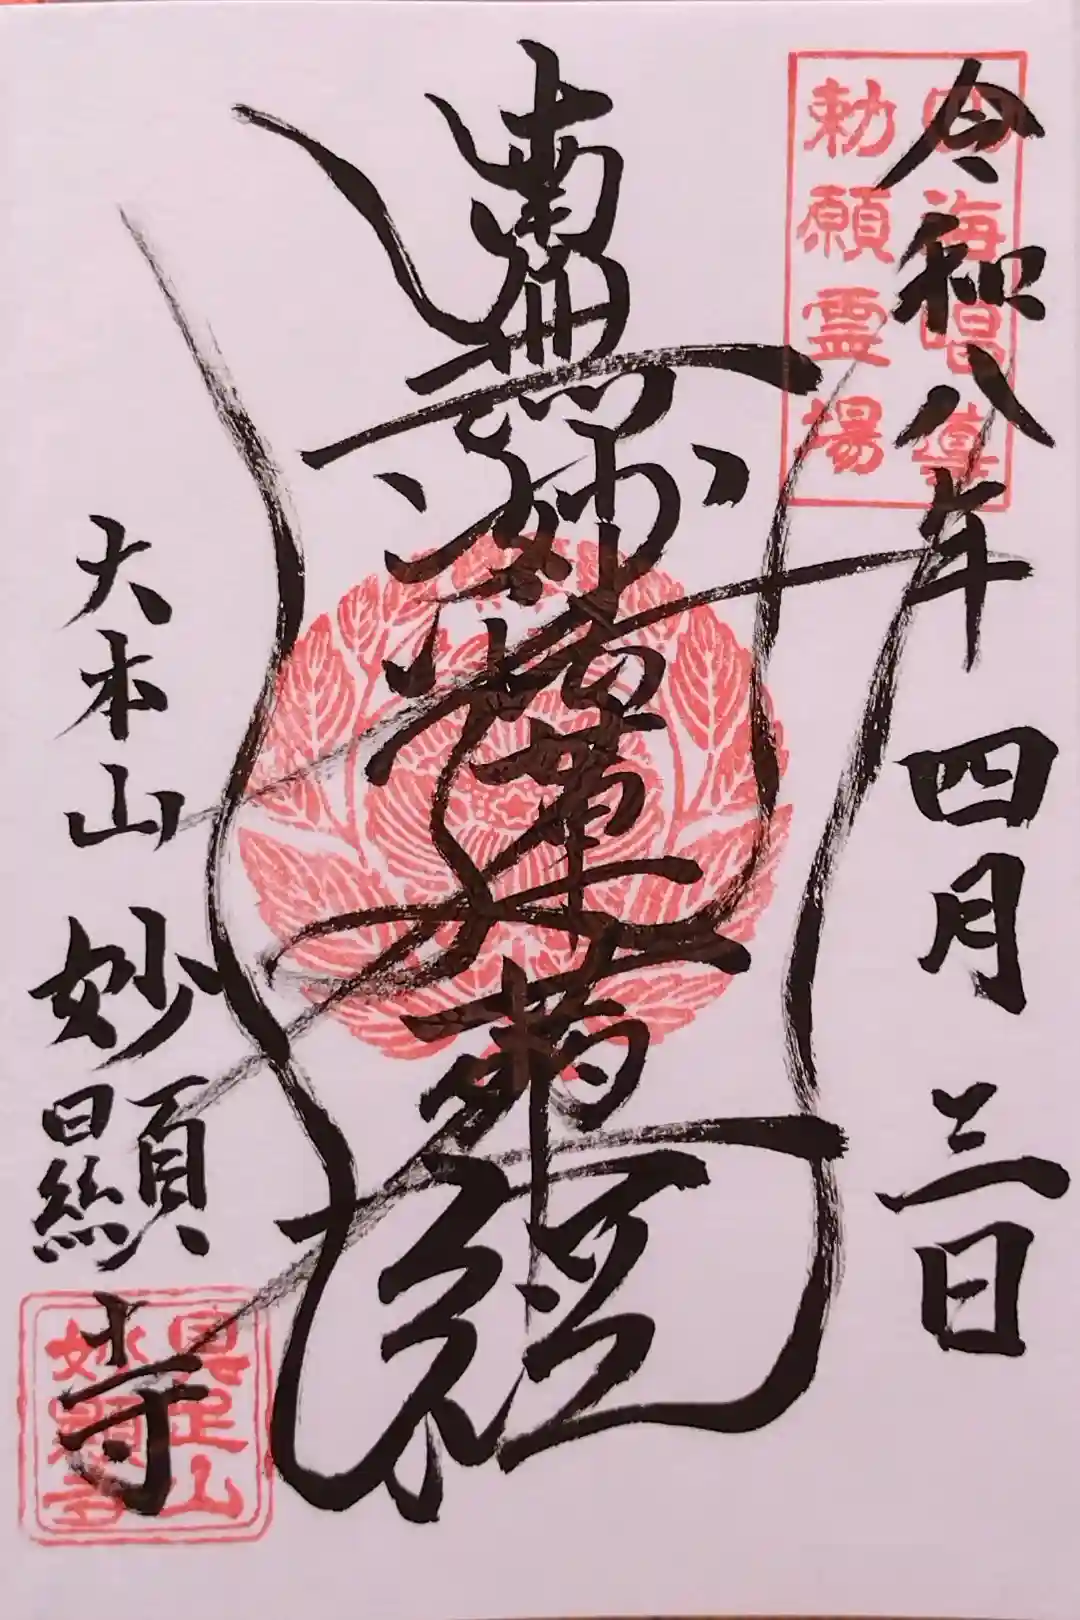 令和八年四月三日
四海唱導
勅願霊場
南無妙法蓮華経
大本山妙顯寺
具足山
妙顯寺